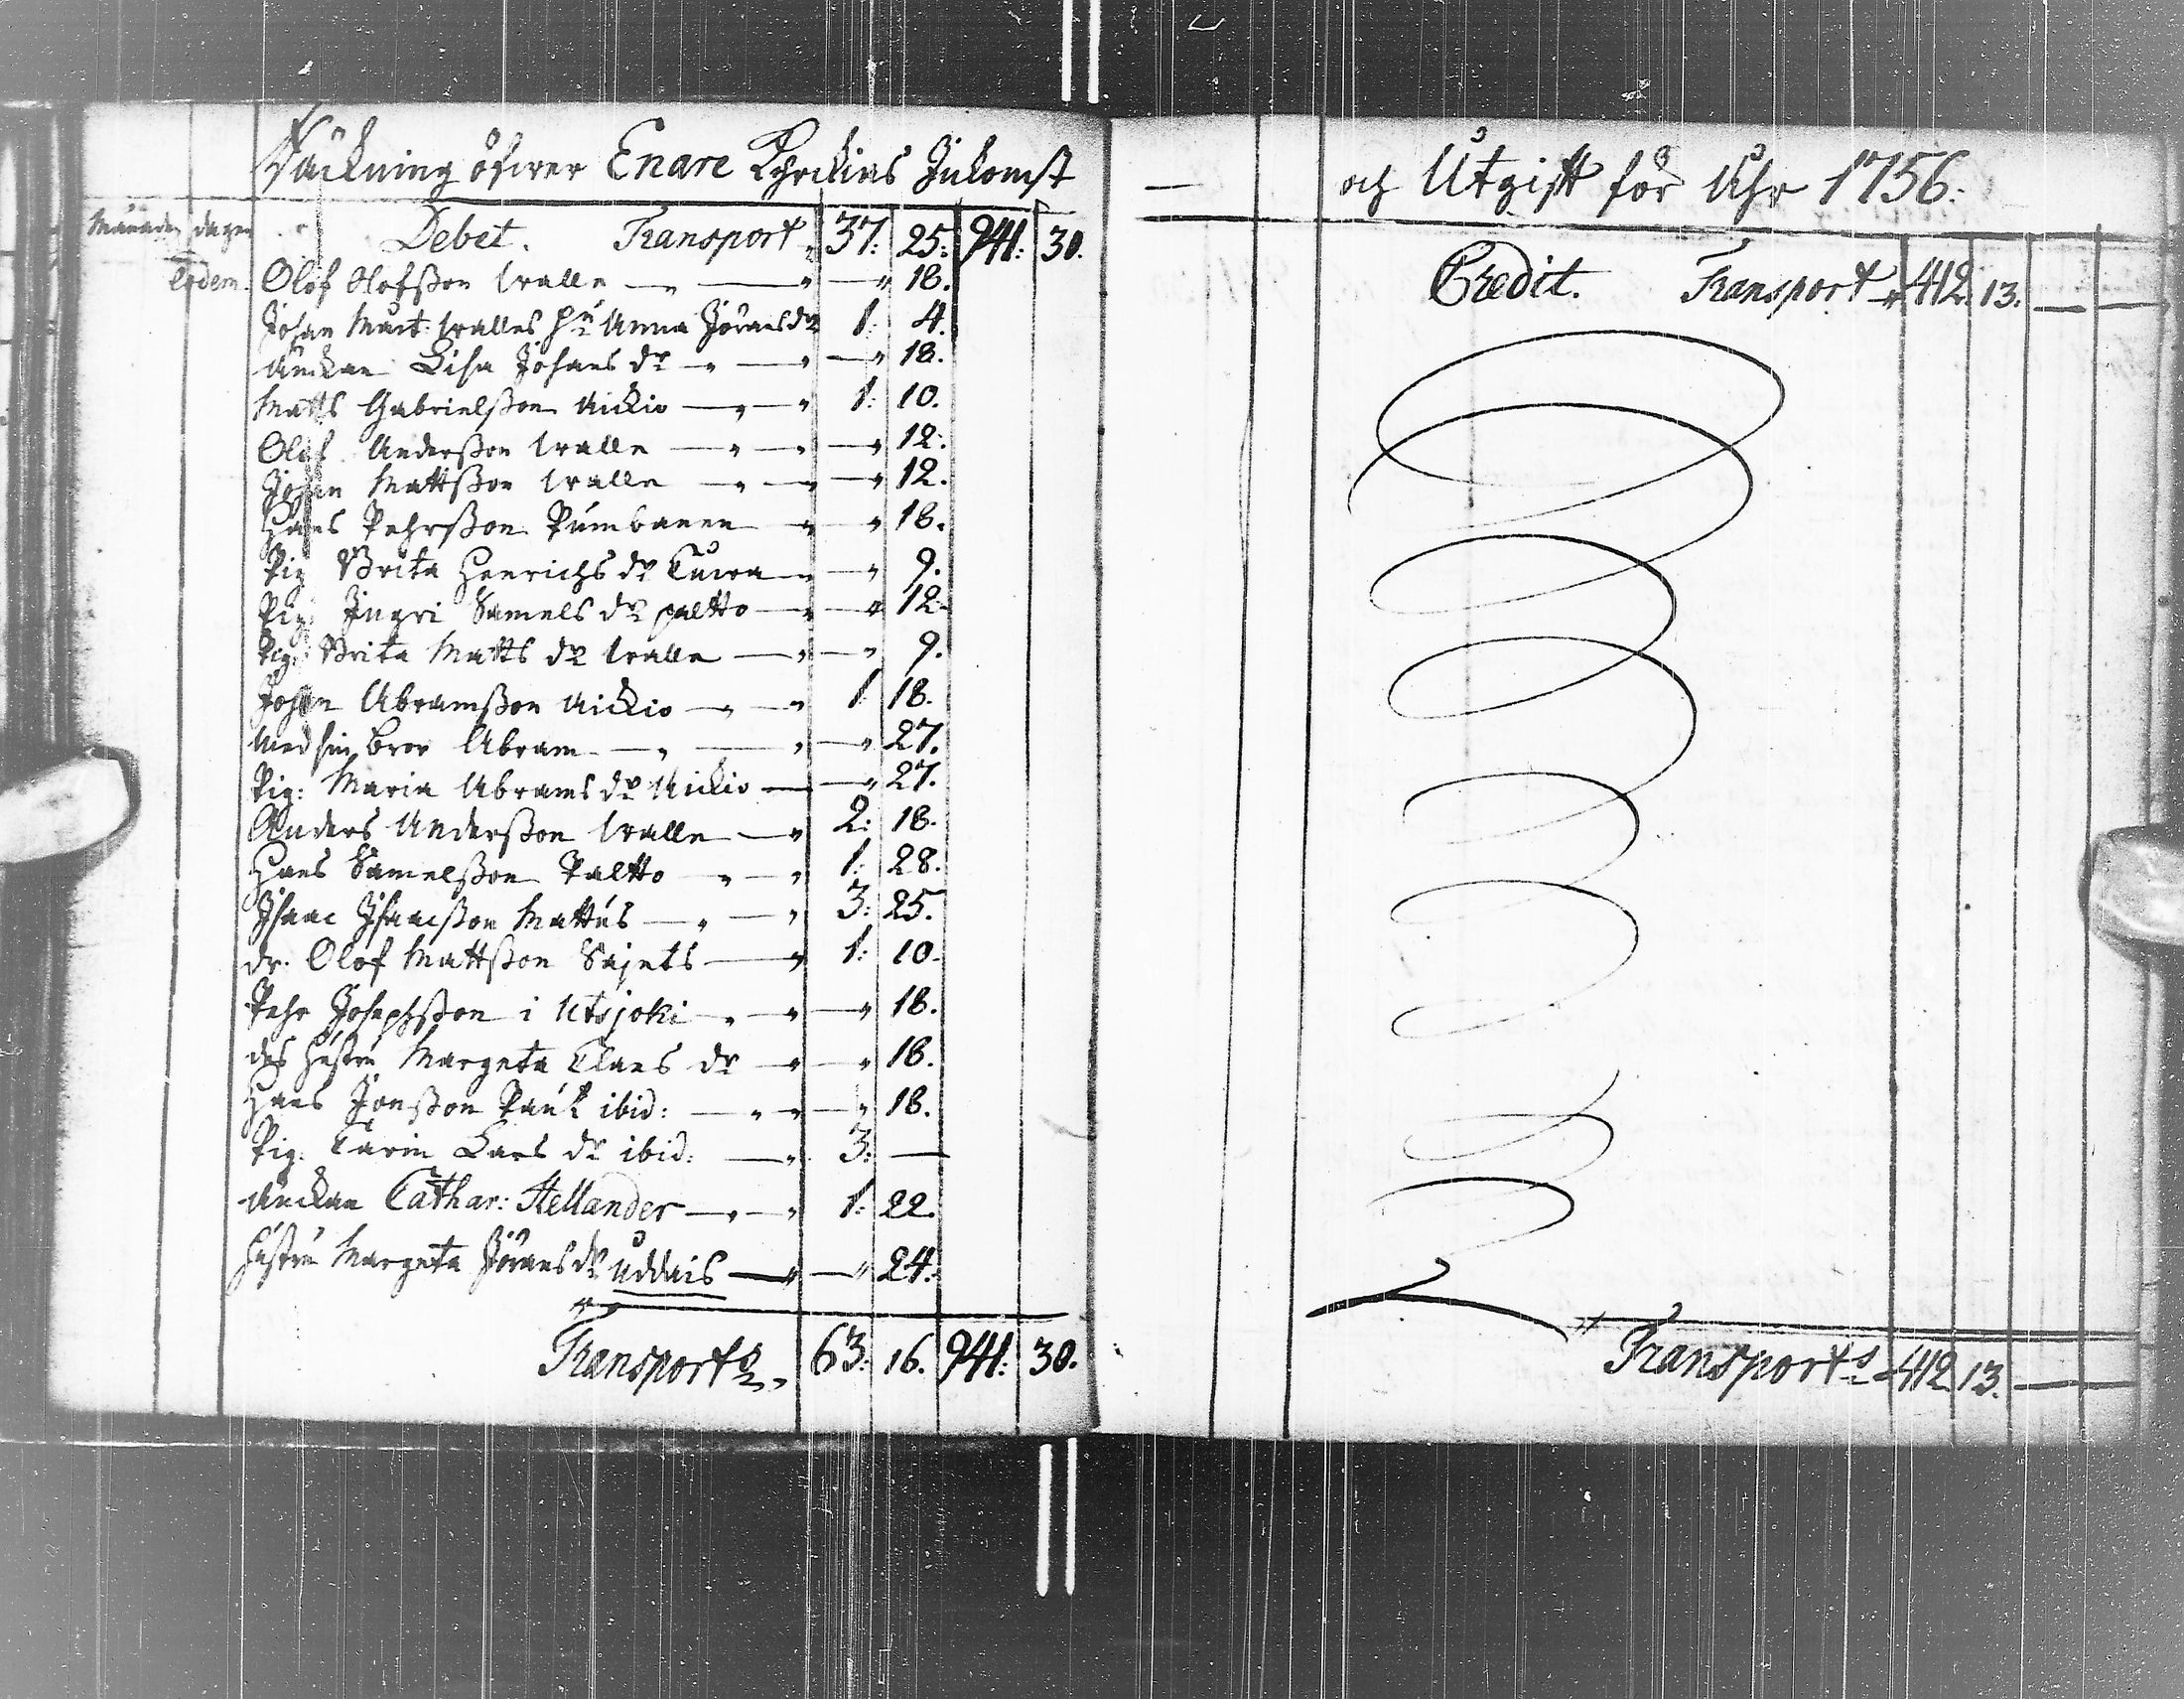 Räckning öfwer Enare Kyrckias Inkomst
Månaden dagen Debet. Transport 37: 25: 941: 30.
Eodem. Olof Olofsson Walle — " — " — " 18.
Johan Matt: Walles hu Anna Jöransdr 1: 4.
Änckan Lisa Johans dr — " — " — " 18.
Matts Gabrielsson Aickio — " — " 1: 10.
Olof Andersson Walle — " — " — " 12.
Johan Mattsson Walle — " — " — " 12.
Hans Pehrsson Pumbanen — " — " 18.
Pig Brita Henrichs dr Cuwa — " — " 9.
Pig: Ingri Samels dr paltto — " — " 12.
Pig: Brita Matts dr Walle — " — " 9.
Johan Abramsson Aickio — " — " 1 18.
Med sin bror Abram — " — " — " 27.
Pig: Maria Abrams dr Aickio — — " 27.
Anders Andersson Walle — " 2: 18.
Hans Samelsson Paltto — " — " 1: 28.
Isaac Isaacsson Mattus — " — " 3: 25.
dr. Olof Mattsson Sajets — " 1: 10.
Pehr Josephsson i Utsjoki — " — " — " 18.
des hustru Margeta Claes dr — " — " 18.
Hans Jonsson Pauk ibid: — " — " — " 18.
Pig: Carin Lars dr ibid: — " 3: —
Änckan Cathar: Hellander — " — " 1: 22.
hustru Margeta Jörans dr Uddais — " — " 24.
Transport 63: 16. 941: 30.
— och Utgift för Åhr 1756.
Credit. Transport " 412. 13. — —
Transport 412 13. — —